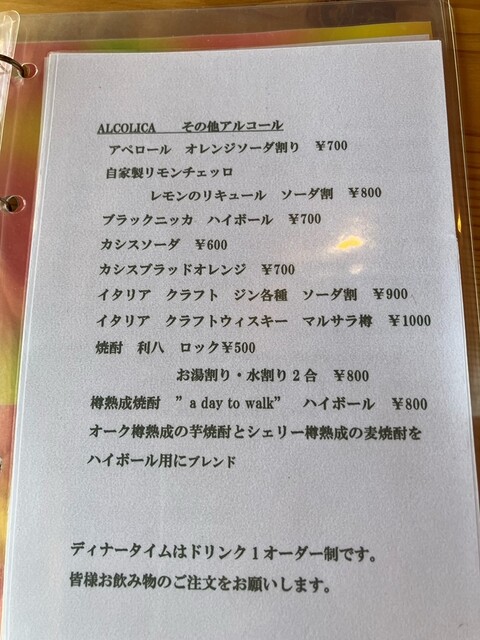 ALCOLICA その他アルコール
アペロール オレンジソーダ割り ￥700
自家製リモンチェッロ
レモンのリキュール ソーダ割 ￥800
ブラックニッカ ハイボール ￥700
カシスソーダ ￥600
カシスブラッドオレンジ ￥700
イタリア クラフト ジン各種 ソーダ割 ￥900
イタリア クラフトウィスキー マルサラ樽 ￥1000
焼酎 利八 ロック￥500
お湯割り・水割り２合 ￥800
樽熟成焼酎 ”a day to walk” ハイボール ￥800
オーク樽熟成の芋焼酎とシェリー樽熟成の麦焼酎を
ハイボール用にブレンド
ディナータイムはドリンク１オーダー制です。
皆様お飲み物のご注文をお願いします。